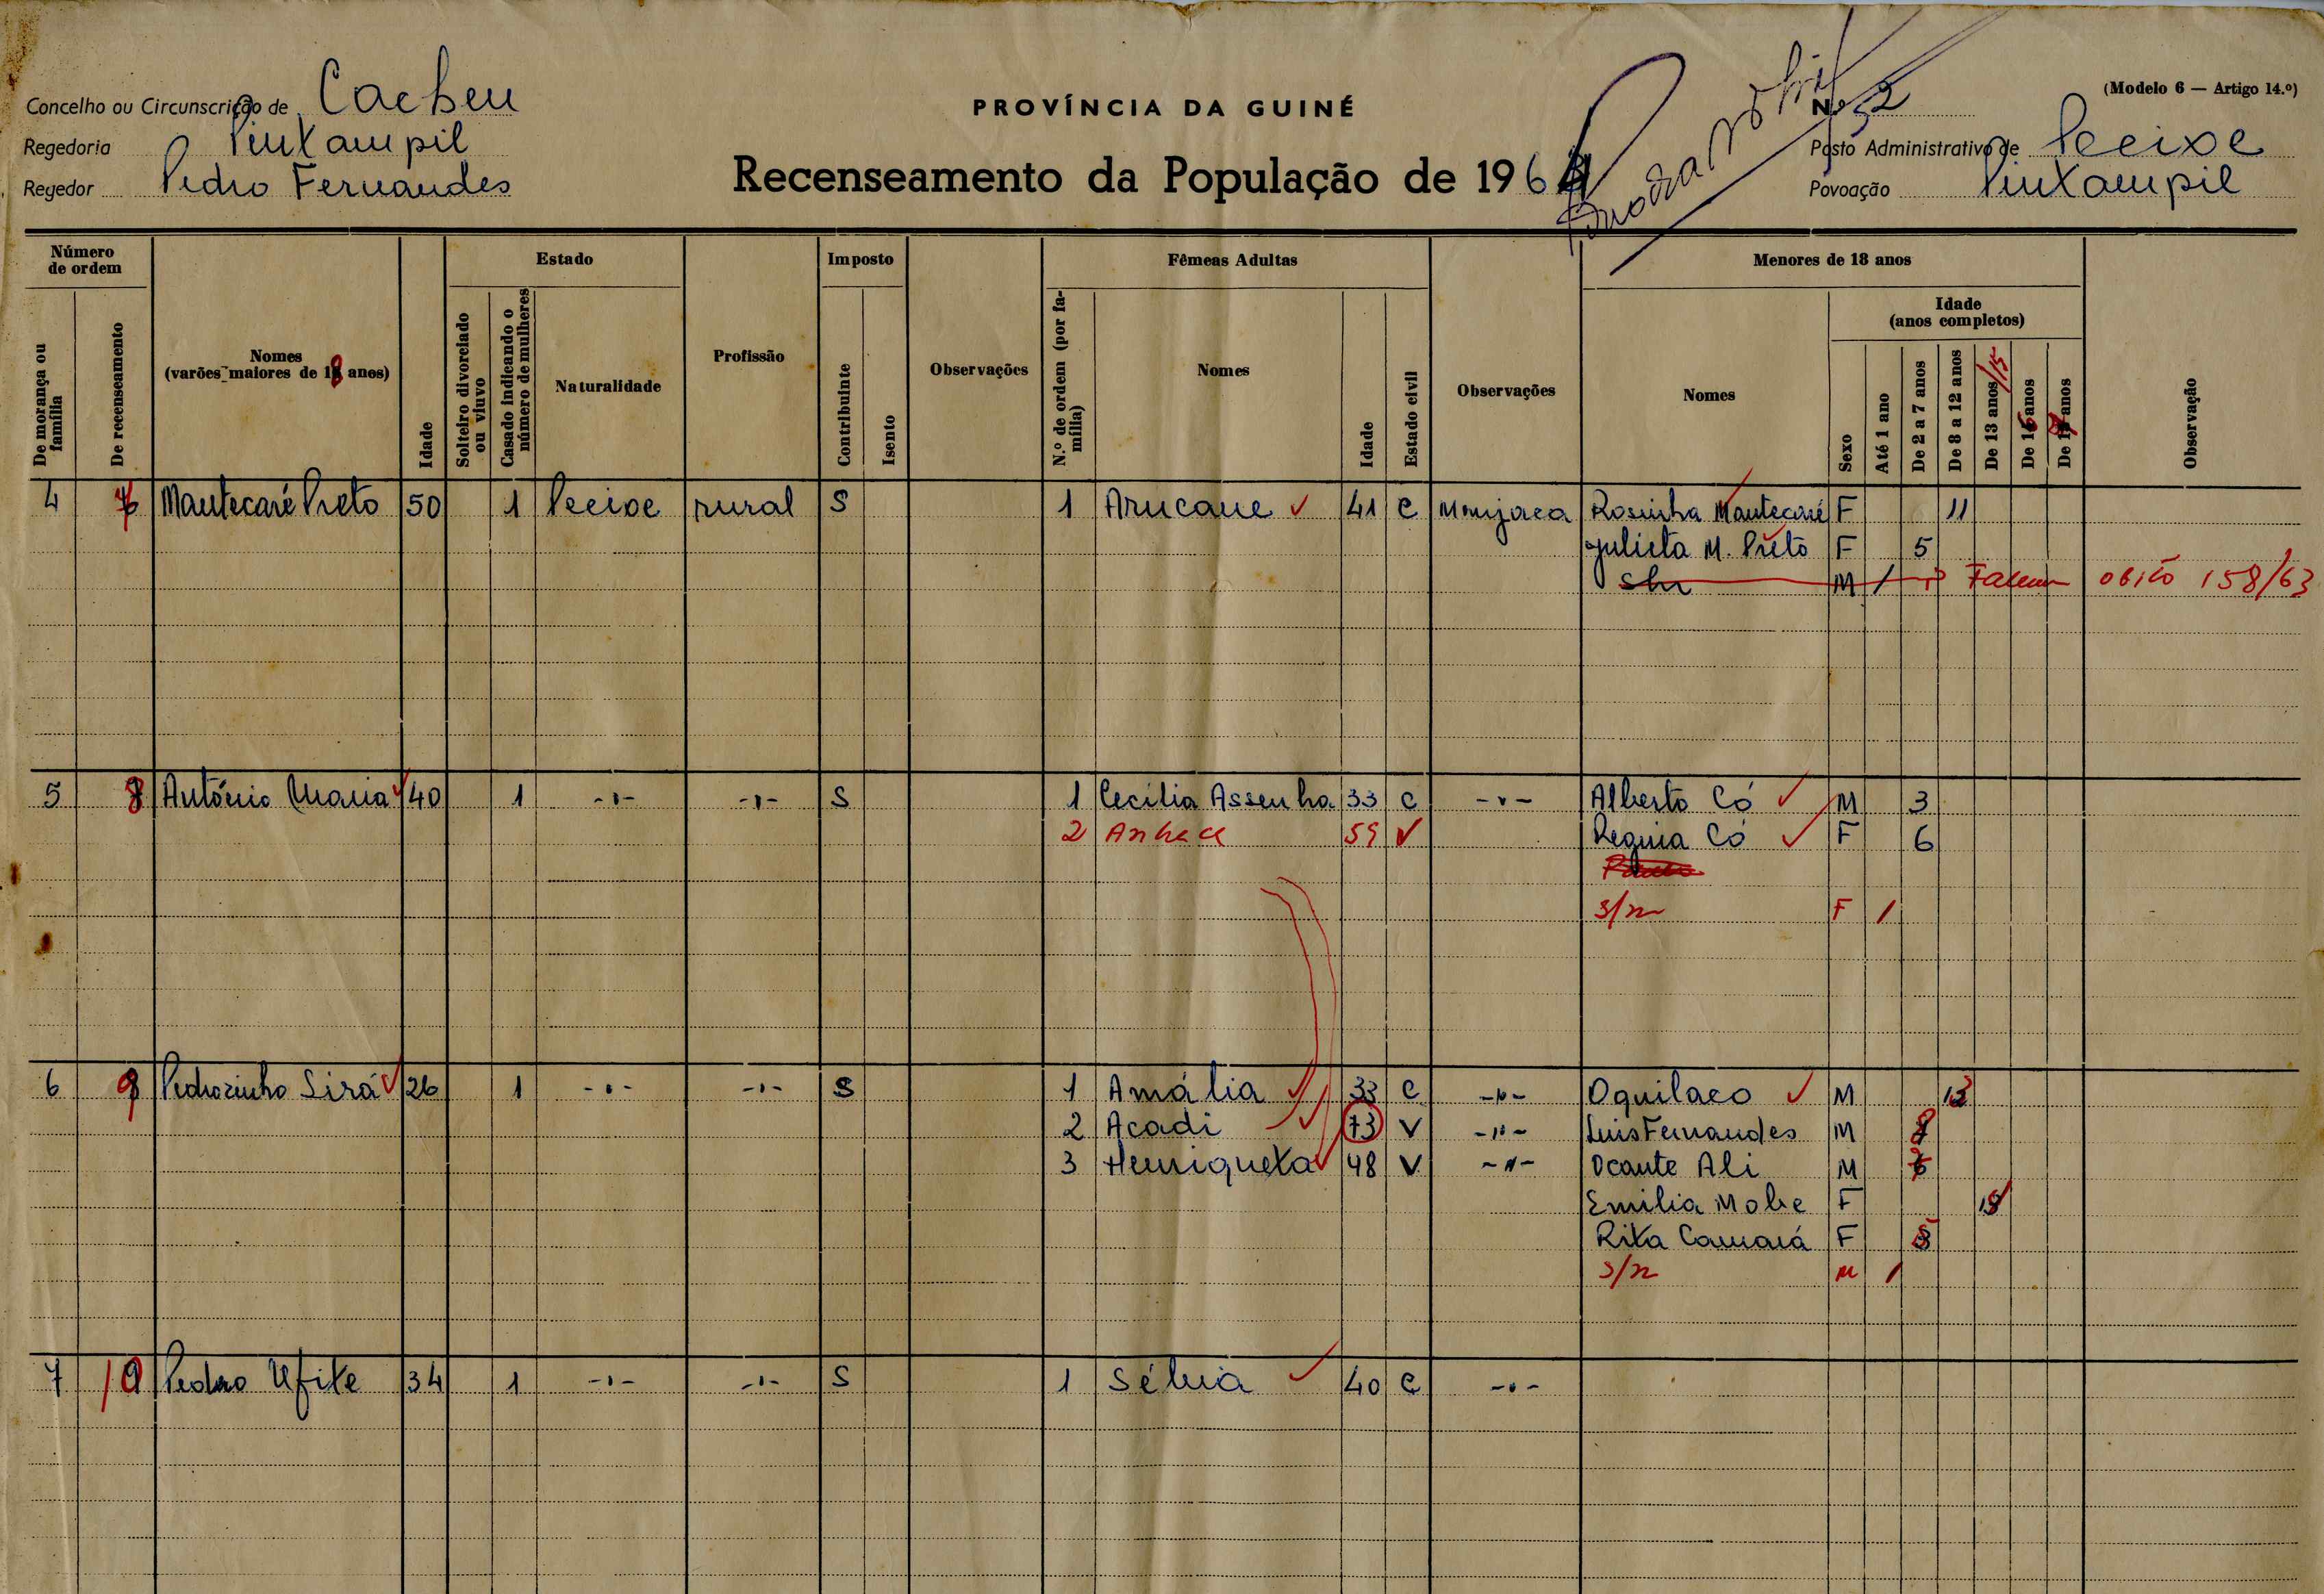 Concelho ou Circunscrição de Cacheu
PROVÍNCIA DA GUINÉ
Nº 2
(Modelo 6 — Artigo 14.º)
Regedoria Pintampil
Posto Administrativo de Pecixe
Regedor Pedro Fernandes
Recenseamento da População de 196
Povoação Pintampil
Número de ordem
Estado
Imposto
Fêmeas Adultas
Menores de 18 anos
De morança ou família
De recenseamento
Nomes
(varões maiores de 18 anos)
Idade
Solteiro divorciado ou viuvo
Casado indicando o número de mulheres
Naturalidade
Profissão
Contribuinte
Isento
Observações
N.º de ordem (por família)
Nomes
Idade
Estado civil
Observações
Nomes
Sexo
Idade
(anos completos)
Até 1 ano
De 2 a 7 anos
De 8 a 12 anos
De 13 anos/15
De 16 anos
De anos
Observação
4 Mantecaré Preto 50 1 Pecixe rural S 1 Arucane 41 C Manjaca Rosinha Mantecaré F 11
Julieta M. Preto F 5
S/n M / Faleceu obito 158/63
5 8 António Maria 40 1 -"- -"- S 1 Cecília Assenha 33 C -"- Alberto Có M 3
2 Anhaca 59 V Reguia Có F 6
s/n F /
6 9 Pedrozinho Sirá 26 1 -"- -"- S 1 Amália 33 C -"- Oquilaco M 13
2 Acadi 73 V -"- Luis Fernandes M 8
3 Henriqueta 48 V -"- Ocante Ali M 7
Emilia Mobe F
Rita Camará F
s/n M /
7 10 Pedro Ufike 34 1 -"- -"- S 1 Sélvia 40 C -"-